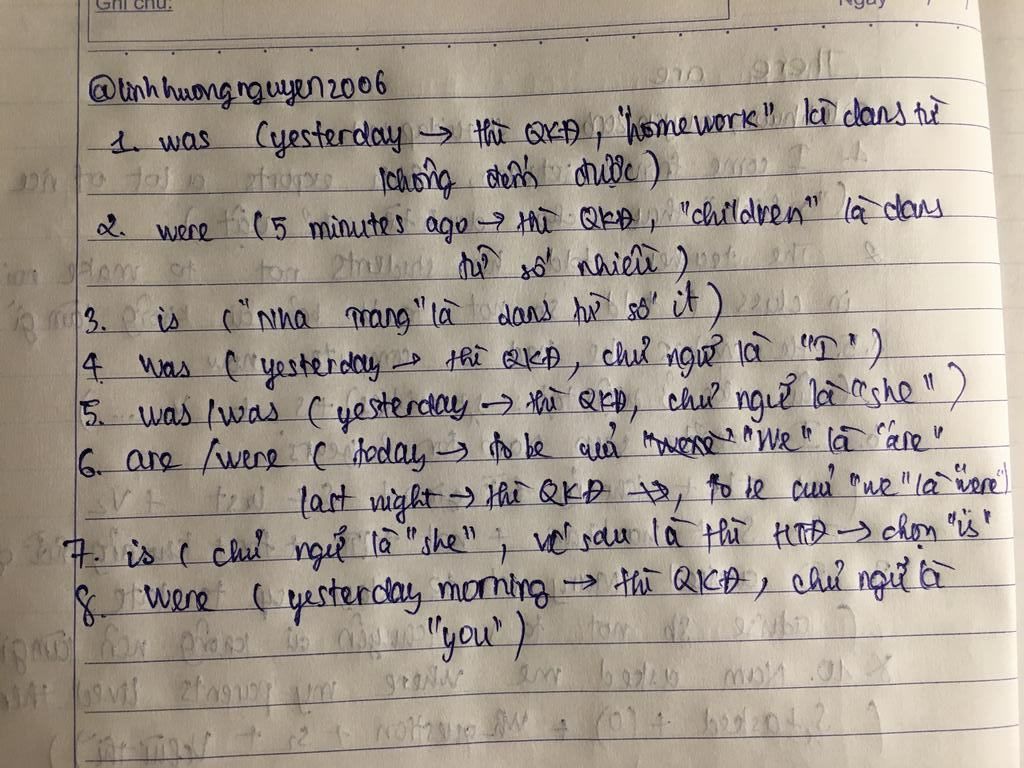 Ghi chú:
Ngày / /
@linhhuongnguyen2006
1. was (yesterday → thì QKĐ, "homework" là danh từ
không đếm được)
2. were (5 minutes ago → thì QKĐ, "children" là danh
từ số nhiều)
3. is ("Nha Trang" là danh từ số ít)
4. was (yesterday → thì QKĐ, chủ ngữ là "I")
5. was/was (yesterday → thì QKĐ, chủ ngữ là "she")
6. are/were (today → to be của "We" là "are"
last night → thì QKĐ →, to be của "we" là "were")
7. is (chủ ngữ là "she", vế sau là thì HTĐ → chọn "is"
8. were (yesterday morning → thì QKĐ, chủ ngữ là
"you")